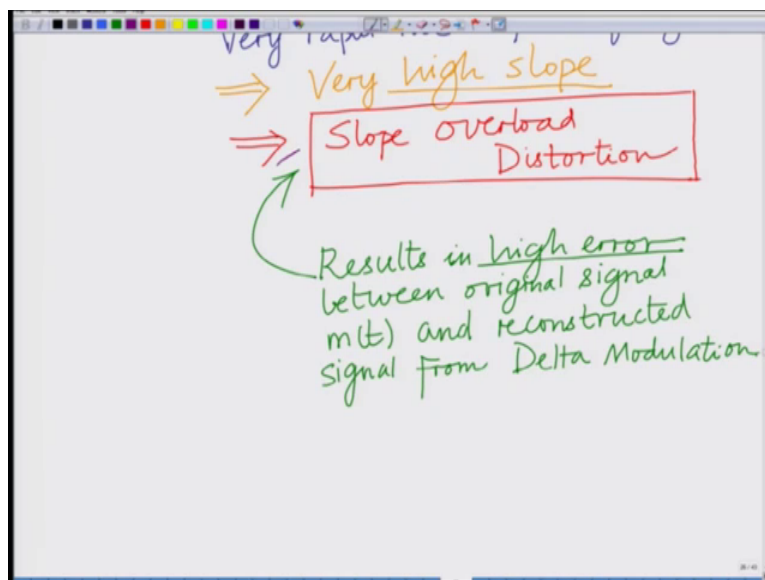 Very
⇒ Very high slope
⇒ Slope Overload
Distortion
Results in high error
between original signal
m(t) and reconstructed
signal from Delta Modulation